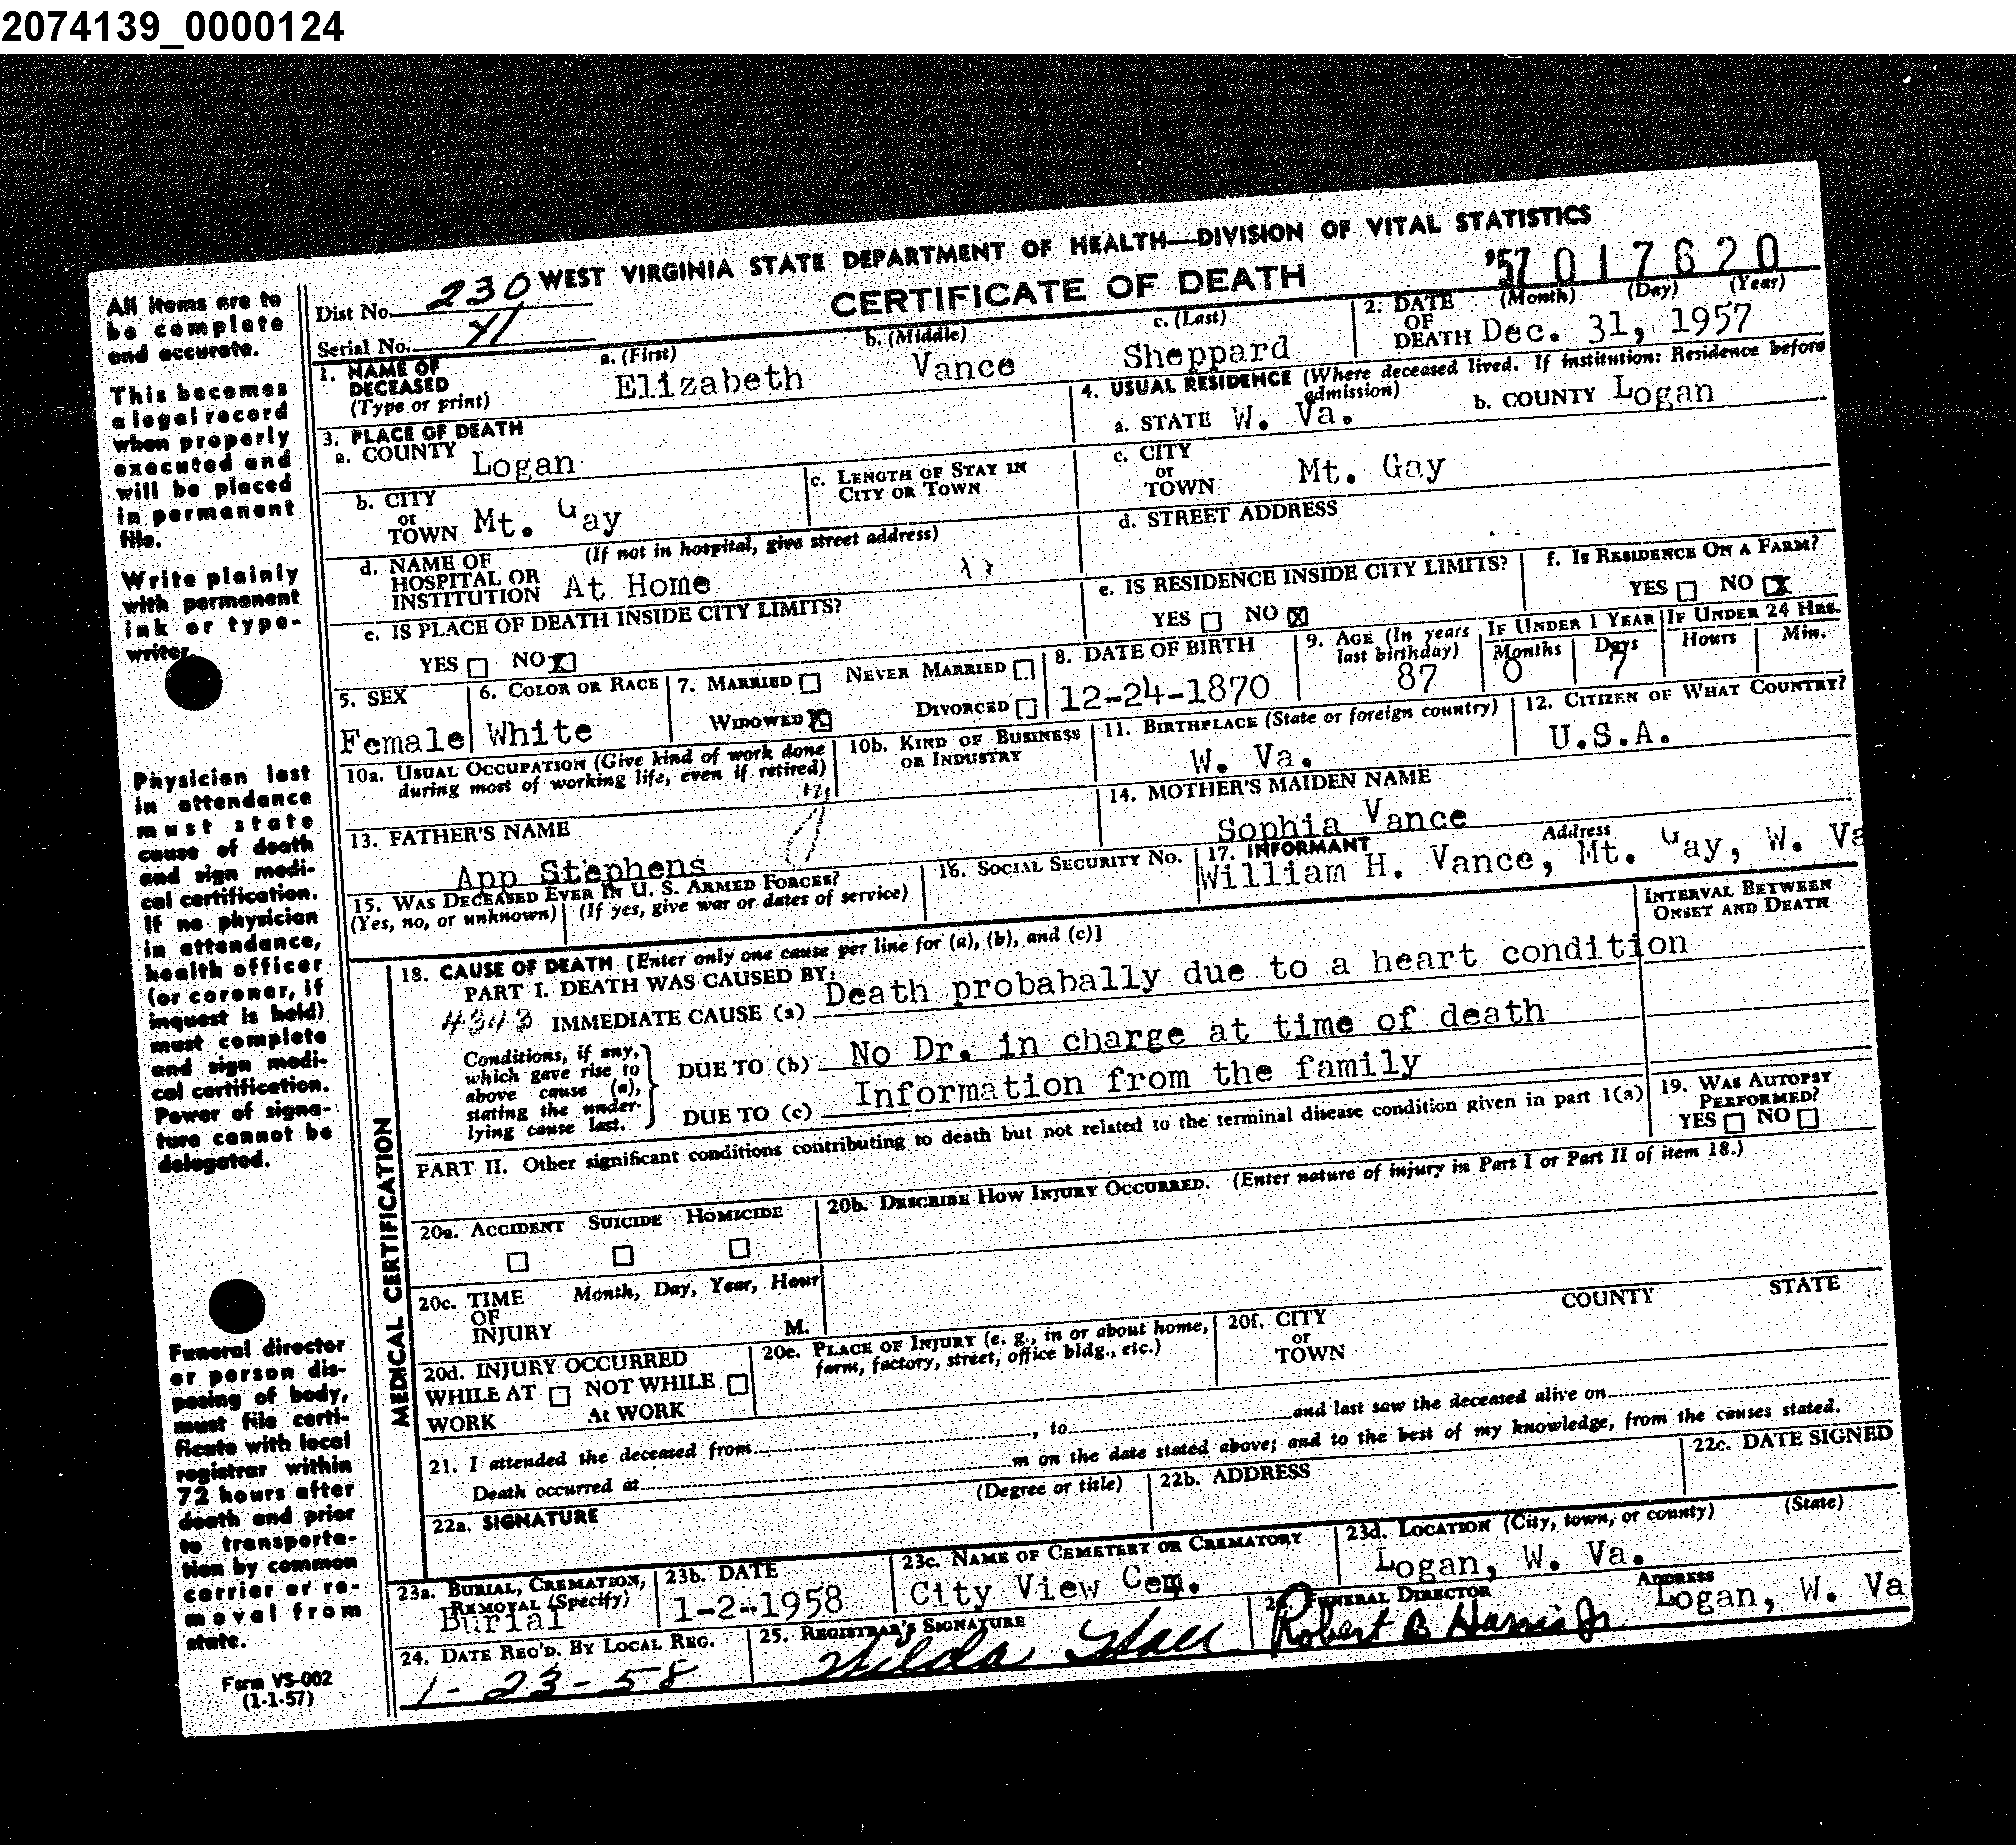 2074139_0000124
WEST VIRGINIA STATE DEPARTMENT OF HEALTH—DIVISION OF VITAL STATISTICS
CERTIFICATE OF DEATH
'57 017620
Dist No. 230
Serial No.
All items are to
be complete
and accurate.
This becomes
a legal record
when properly
executed and
will be placed
in permanent
file.
Write plainly
with permanent
ink or type-
writer.
Physician last
in attendance
must state
cause of death
and sign medi-
cal certification.
If no physician
in attendance,
health officer
(or coroner, if
inquest is held)
must complete
and sign medi-
cal certification.
Power of signa-
ture cannot be
delegated.
Funeral director
or person dis-
posing of body,
must file certi-
ficate with local
registrar within
72 hours after
death and prior
to transporta-
tion by common
carrier or re-
moval from
state.
Form VS-002
(1-1-57)
1. NAME OF DECEASED (Type or print) a. (First) Elizabeth b. (Middle) Vance c. (Last) Sheppard
2. DATE OF DEATH (Month) (Day) (Year) Dec. 31, 1957
3. PLACE OF DEATH
a. COUNTY Logan
b. CITY or TOWN Mt. Gay
c. LENGTH OF STAY IN CITY OR TOWN
d. NAME OF HOSPITAL OR INSTITUTION (If not in hospital, give street address) At Home
e. IS PLACE OF DEATH INSIDE CITY LIMITS?
YES NO X
4. USUAL RESIDENCE (Where deceased lived. If institution: Residence before admission)
a. STATE W. Va. b. COUNTY Logan
c. CITY or TOWN Mt. Gay
d. STREET ADDRESS
e. IS RESIDENCE INSIDE CITY LIMITS?
YES NO X
f. IS RESIDENCE ON A FARM?
YES NO X
5. SEX Female
6. COLOR OR RACE White
7. MARRIED NEVER MARRIED
WIDOWED X DIVORCED
8. DATE OF BIRTH 12-24-1870
9. AGE (In years last birthday) 87
IF UNDER 1 YEAR Months 0 Days 7
IF UNDER 24 HRS. Hours Min.
10a. USUAL OCCUPATION (Give kind of work done during most of working life, even if retired)
10b. KIND OF BUSINESS OR INDUSTRY
11. BIRTHPLACE (State or foreign country) W. Va.
12. CITIZEN OF WHAT COUNTRY? U.S.A.
13. FATHER'S NAME App Stephens
14. MOTHER'S MAIDEN NAME Sophia Vance
15. WAS DECEASED EVER IN U. S. ARMED FORCES?
(Yes, no, or unknown) (If yes, give war or dates of service)
16. SOCIAL SECURITY NO.
17. INFORMANT Address
William H. Vance, Mt. Gay, W. Va
MEDICAL CERTIFICATION
18. CAUSE OF DEATH [Enter only one cause per line for (a), (b), and (c)]
INTERVAL BETWEEN ONSET AND DEATH
PART I. DEATH WAS CAUSED BY:
4343 IMMEDIATE CAUSE (a) Death probabally due to a heart condition
Conditions, if any, which gave rise to above cause (a), stating the under-lying cause last.
DUE TO (b) No Dr. in charge at time of death
DUE TO (c) Information from the family
PART II. Other significant conditions contributing to death but not related to the terminal disease condition given in part I(a)
19. WAS AUTOPSY PERFORMED?
YES NO
20a. ACCIDENT SUICIDE HOMICIDE
20b. DESCRIBE HOW INJURY OCCURRED. (Enter nature of injury in Part I or Part II of item 18.)
20c. TIME OF INJURY Month, Day, Year, Hour
M.
20d. INJURY OCCURRED
WHILE AT WORK NOT WHILE At WORK
20e. PLACE OF INJURY (e. g., in or about home, farm, factory, street, office bldg., etc.)
20f. CITY or TOWN COUNTY STATE
21. I attended the deceased from , to and last saw the deceased alive on
Death occurred at m on the date stated above; and to the best of my knowledge, from the causes stated.
22a. SIGNATURE (Degree or title)
22b. ADDRESS
22c. DATE SIGNED
23a. BURIAL, CREMATION, REMOVAL (Specify) Burial
23b. DATE 1-2-1958
23c. NAME OF CEMETERY OR CREMATORY City View Cem.
23d. LOCATION (City, town, or county) (State) Logan, W. Va.
24. DATE REC'D. BY LOCAL REG. 1-23-58
25. REGISTRAR'S SIGNATURE Hilda
FUNERAL DIRECTOR Robert B Harris Jr ADDRESS Logan, W. Va